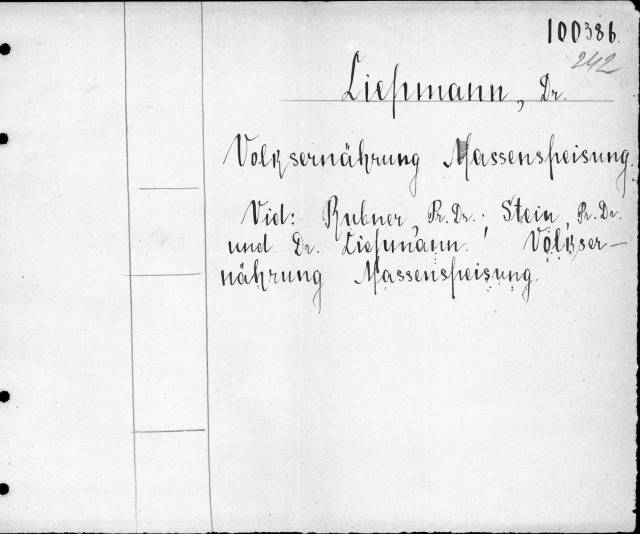 100386
242
Liepmann, Dr.
Volksernährung Massenspeisung.
Vid: Rubner, Pr. Dr.; Stein, Pr. Dr.
und Dr. Liepmann. Volkser-
nährung Massenspeisung.